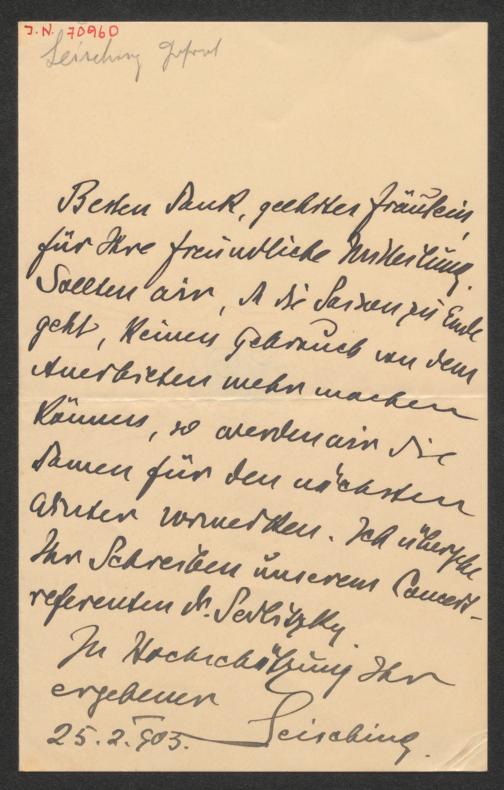 J.N. 70960
Leisching
Besten Dank, geehrtes Fräulein,
für Ihre freundliche Mitteilung.
Sollten wir, da die Saison zu Ende
geht, keinen Gebrauch von dem
Anerbieten mehr machen
können, so werden wir die
Damen für den nächsten
Winter vormerken. Ich übergebe
Ihr Schreiben unserem Concert-
referenten Dr. Sedlitzky
In Hochschätzung Ihr
ergebener
25.2.903. Leisching.